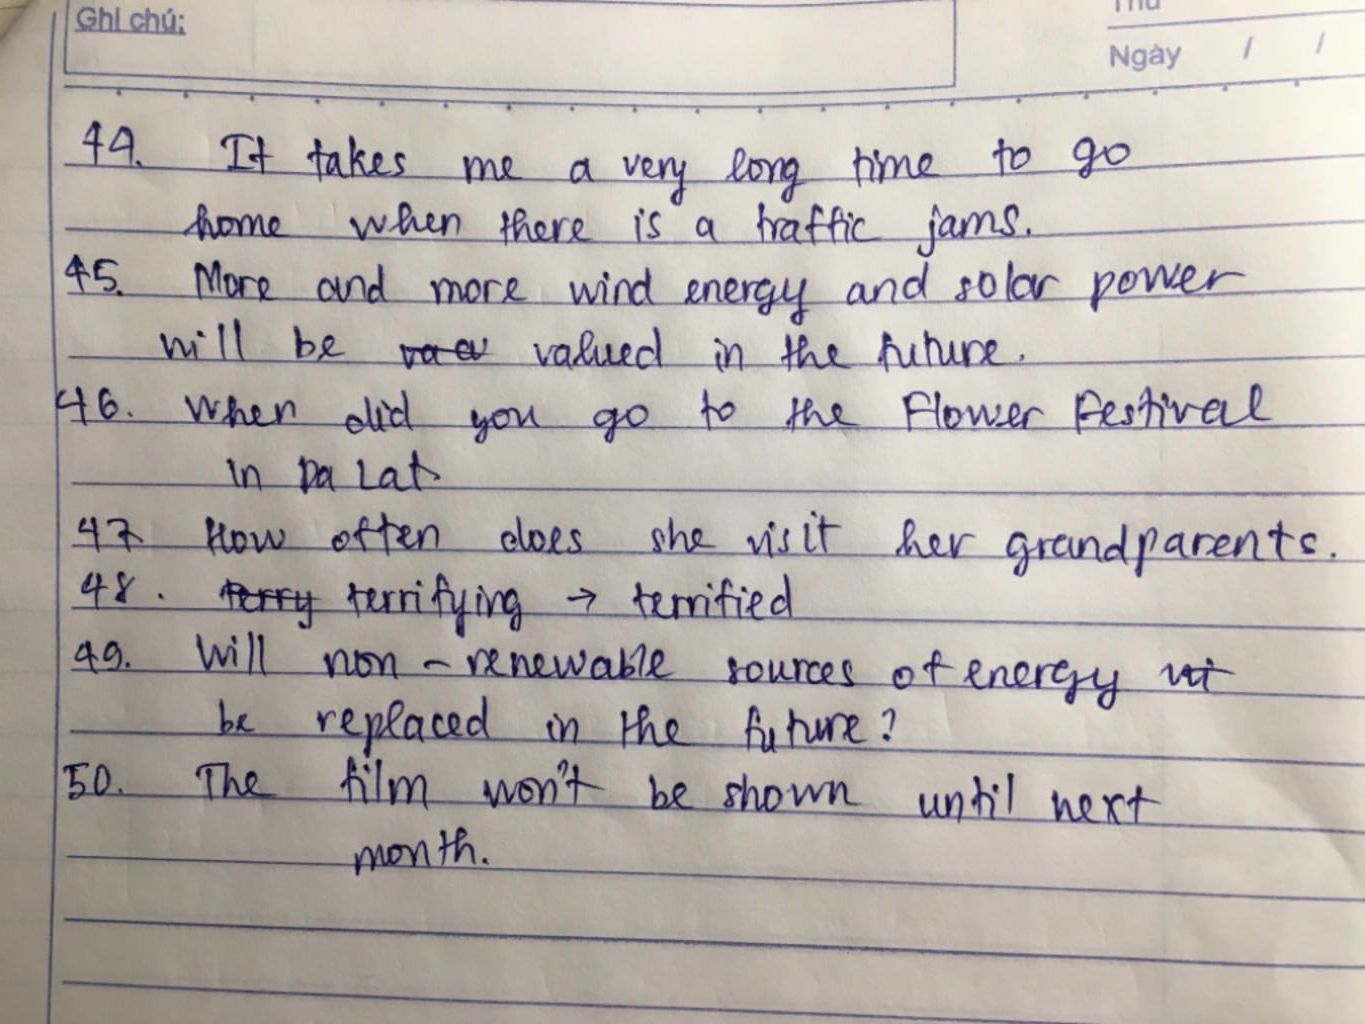 Ghi chú:
Thứ
Ngày / /
44. It takes me a very long time to go
home when there is a traffic jams.
45. More and more wind energy and solar power
will be valued in the future.
46. When did you go to the Flower Festival
in Da Lat
47 How often does she visit her grandparents.
48. terry terrifying → terrified
49. Will non-renewable sources of energy
be replaced in the future?
50. The film won't be shown until next
month.